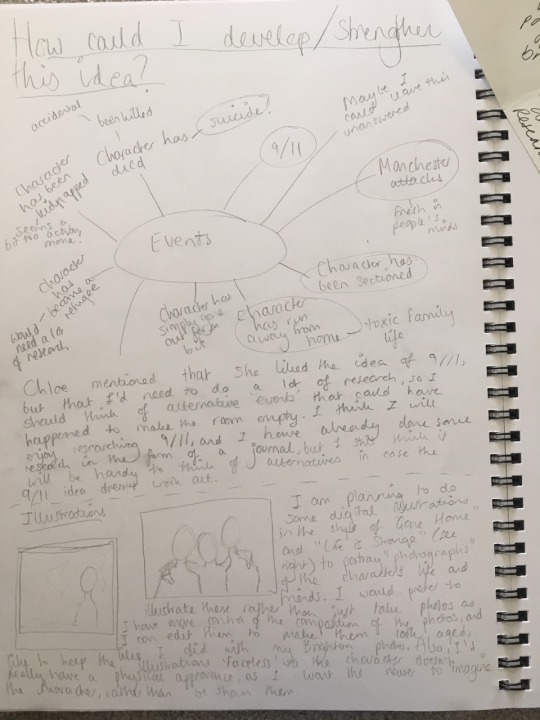 How could I develop/strengthen
this idea?
accidental
been killed
Character has
died
suicide?
9/11
Maybe I
could leave this
unanswered
Manchester
attacks
Fresh in
people's
minds
Character
has been
kidnapped
seems a
bit too action
movie.
Events
Character has
been sectioned
Character
has
become a
refugee
would
need a lot
of research
Character has
simply gone
out for a
bit
Character
has run
away from
home
toxic family
life
Chloe mentioned that she liked the idea of 9/11,
but that I'd need to do a lot of research, so I
should think of alternative 'events' that could have
happened to make the room empty. I think I will
enjoy researching 9/11, and I have already done some
research in the form of a journal, but I still think it
will be handy to think of alternatives in case the
9/11 idea doesn't work out.
Illustrations
I am planning to do
some digital illustrations
in the style of "Gone Home"
and "Life is Strange" (see
right) to portray "photographs"
of the character's life and
friends. I would prefer to
illustrate these rather than just take photos as
I have more control of the composition of the photos, and
I can edit them to make them look aged,
like I did with my Brighton photos. Also, I'd
like to keep the illustrations 'faceless' so the character doesn't
really have a physical appearance, as I want the viewer to imagine
the character, rather than be shown them
Research